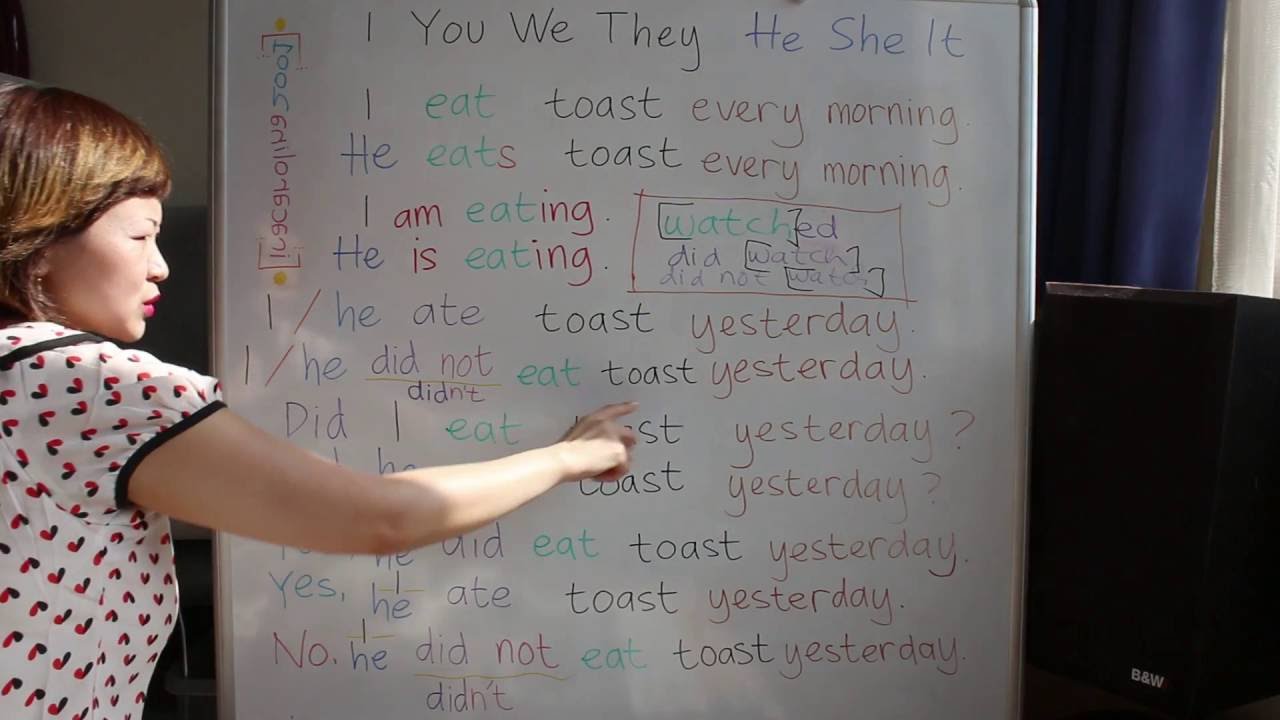 I You We They He She It
I eat toast every morning.
He eats toast every morning.
I am eating.
He is eating.
[watch]ed
did [watch]
did not [watch]
I / he ate toast yesterday.
I / he did not eat toast yesterday.
didn't
Did I eat yesterday?
he toast yesterday?
he did eat toast yesterday.
Yes, I
he ate toast yesterday.
No. I
he did not eat toast yesterday.
didn't
B&W